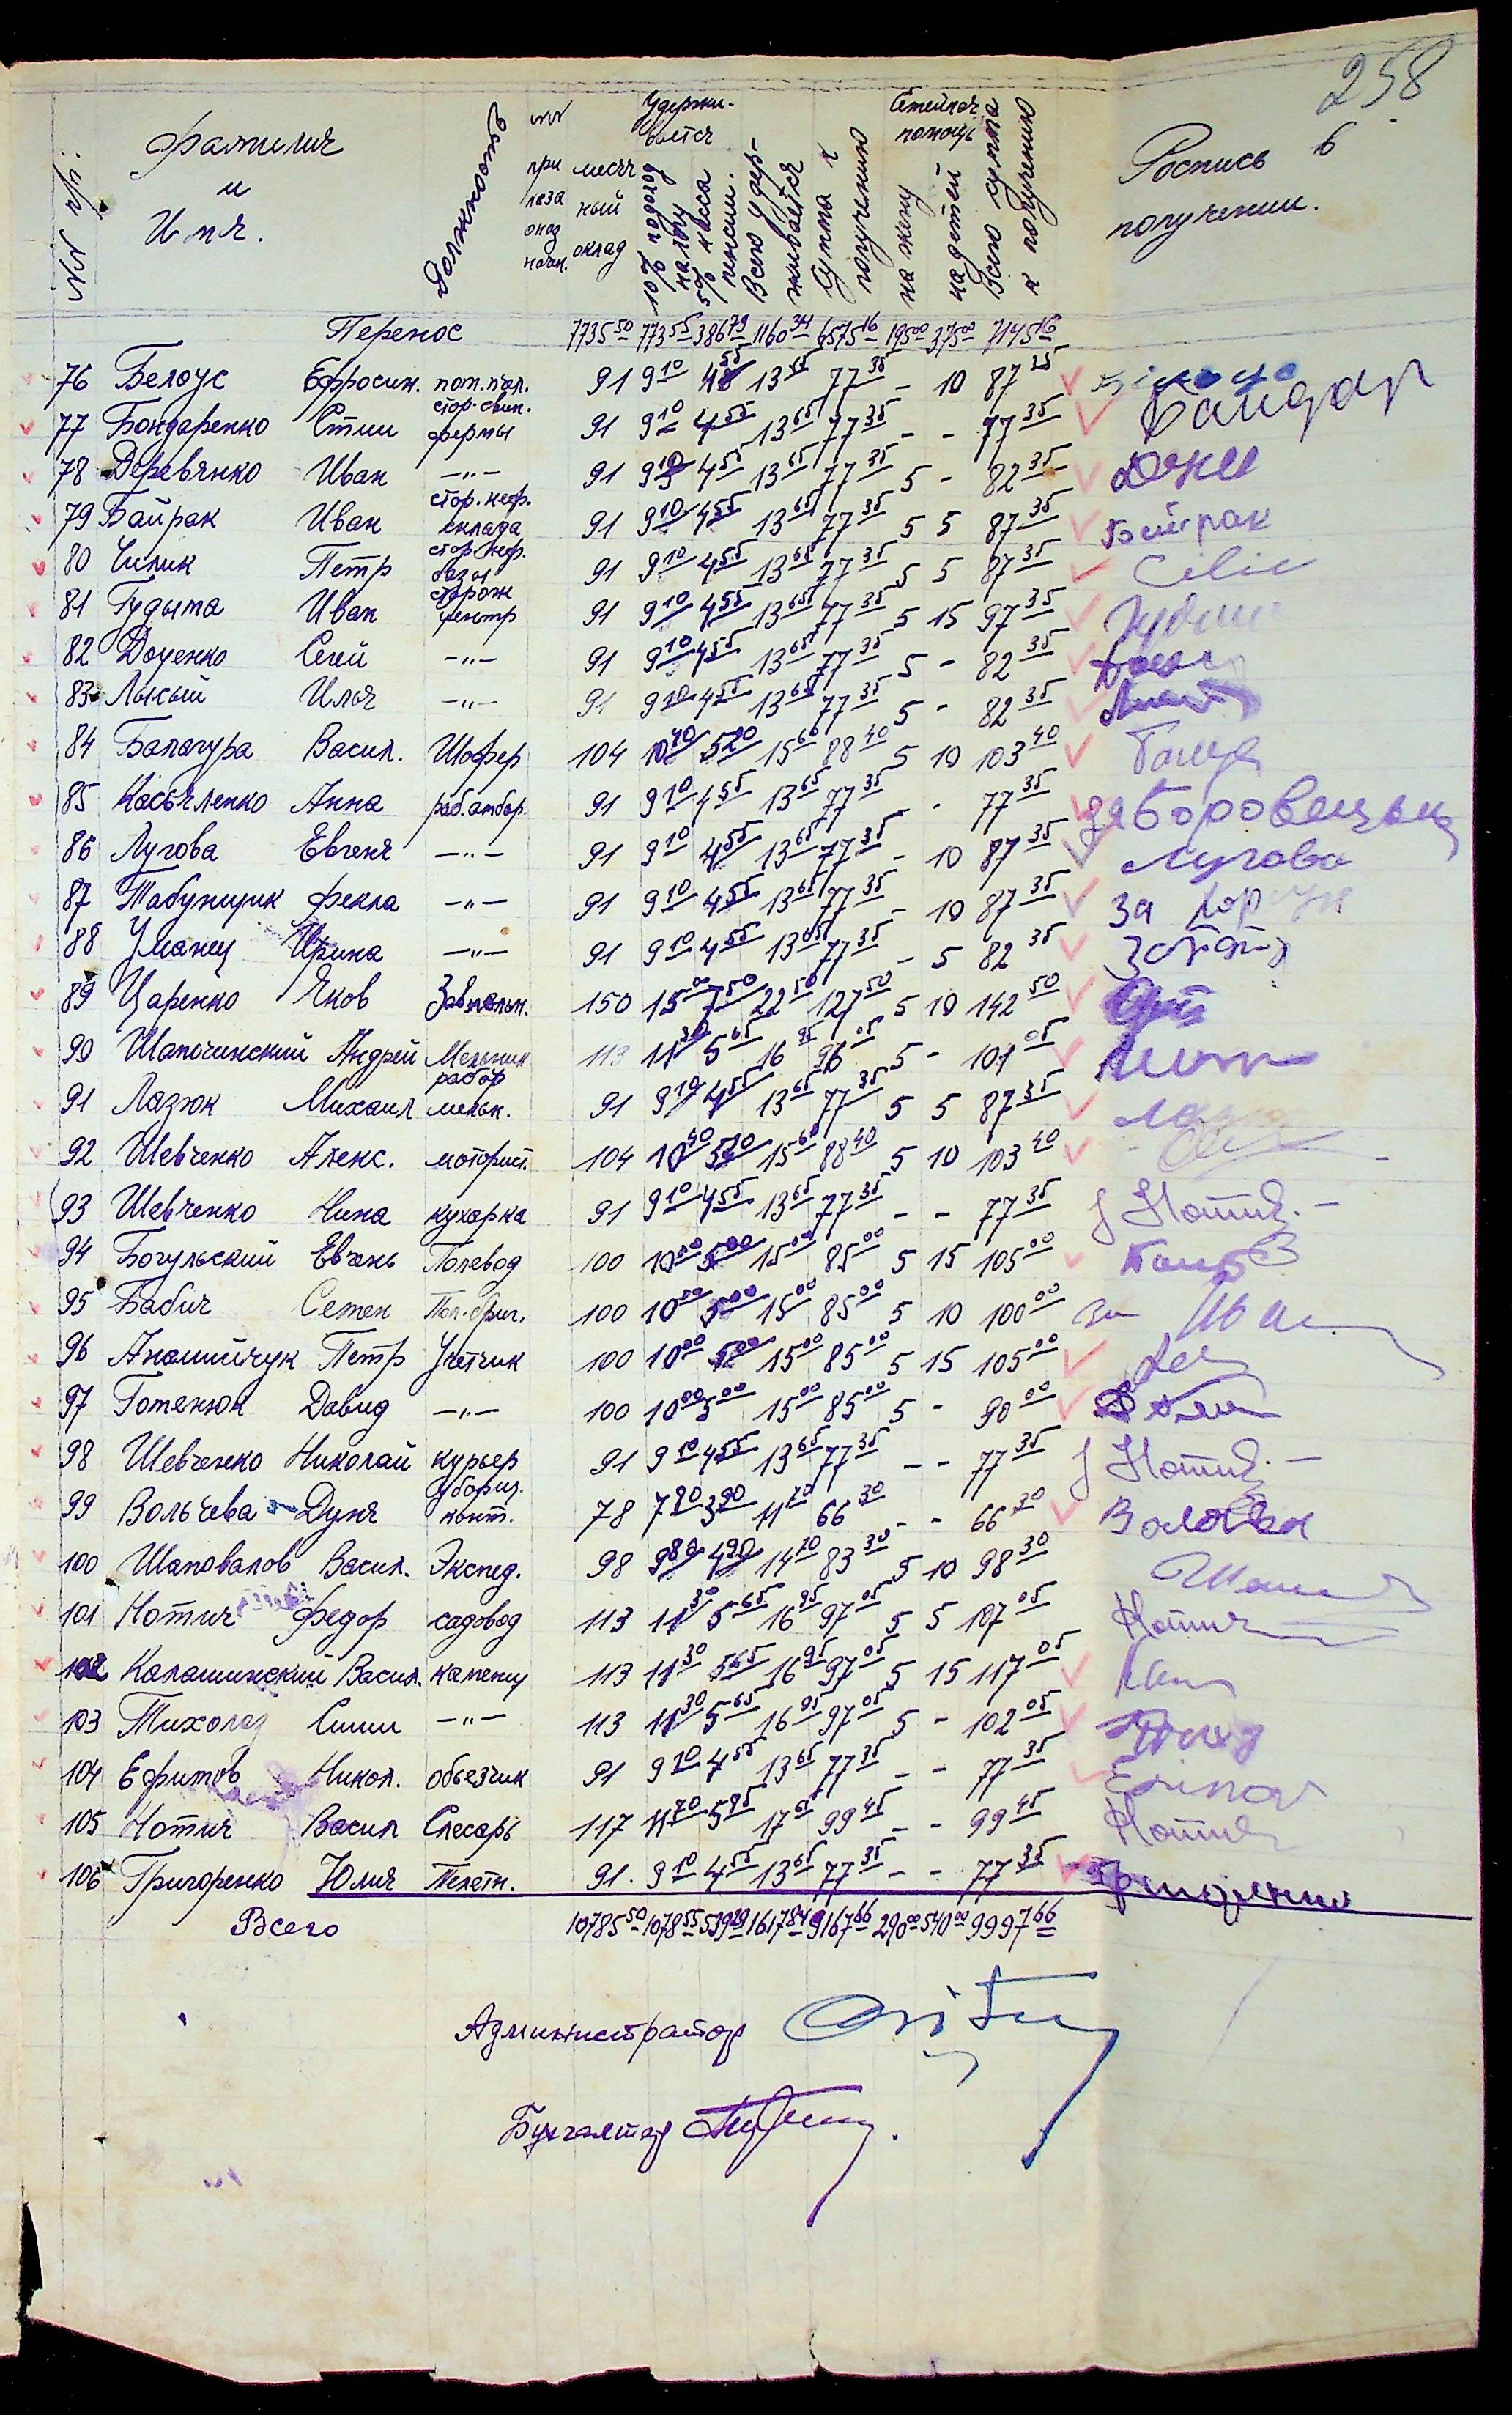 258
№№ п/п. Фамилия и Имя. Должность №№ приказа о наз нач. месячный оклад Удерживается 10% подоход налог 5% касса пенсии. Всего удерживается Сумма к получению Семейная помощь на жену на детей Всего сумма к получению Роспись в получении.
Перенос 7735 50 773 55 386 79 1160 34 6575 16 195 00 375 00 7145 16
76 Белоус Ефросин. пом. пчел. 91 9 10 4 55 13 65 77 35 - 10 87 35
77 Бондаренко Стии стор. свин. фермы 91 9 10 4 55 13 65 77 35 - - 77 35
78 Деревянко Иван —"— 91 9 10 4 55 13 65 77 35 5 - 82 35
79 Байрак Иван стор. неф. склада 91 9 10 4 55 13 65 77 35 5 5 87 35 Байрак
80 Чилик Петр стор. неф. базы 91 9 10 4 55 13 65 77 35 5 5 87 35
81 Гудыма Иван сторож центр 91 9 10 4 55 13 65 77 35 5 15 97 35
82 Доценко Сегей —"— 91 9 10 4 55 13 65 77 35 5 - 82 35
83 Лысый Илья —"— 91 9 10 4 55 13 65 77 35 5 - 82 35
84 Балагура Васил. Шофер 104 10 40 5 20 15 60 88 40 5 10 103 40
85 Касьяленко Анна раб. амбар 91 9 10 4 55 13 65 77 35 - 77 35 за Боровецька
86 Лугова Евгеня —"— 91 9 10 4 55 13 65 77 35 - 10 87 35 Лугова
87 Табунщик Фекла —"— 91 9 10 4 55 13 65 77 35 - 10 87 35 за
88 Уманец Ирина —"— 91 9 10 4 55 13 65 77 35 - 5 82 35
89 Царенко Яков Зав мельн. 150 15 00 7 50 22 50 127 50 5 10 142 50
90 Шапочинский Андрей Мельник 113 11 30 5 65 16 95 96 05 5 - 101 05
91 Лазюк Михаил рабор мельн. 91 9 10 4 55 13 65 77 35 5 5 87 35
92 Шевченко Алекс. моторист. 104 10 40 5 20 15 60 88 40 5 10 103 40
93 Шевченко Нина кухарка 91 9 10 4 55 13 65 77 35 - - 77 35
94 Богульский Евгень Полевод 100 10 00 5 00 15 00 85 00 5 15 105 00
95 Бабич Семен Пол. бриг. 100 10 00 5 00 15 00 85 00 5 10 100 00 за
96 Анамийчук Петр Учетчик 100 10 00 5 00 15 00 85 00 5 15 105 00
97 Готенюк Давид —"— 100 10 00 5 00 15 00 85 00 5 - 90 00
98 Шевченко Николай курьер 91 9 10 4 55 13 65 77 35 - - 77 35
99 Вольчева Дуня убории. конт. 78 7 80 3 90 11 70 66 30 - - 66 30
100 Шаповалов Васил. Экспед. 98 9 80 4 90 14 70 83 30 5 10 98 30
101 Нотич Федор садовод 113 11 30 5 65 16 95 97 05 5 5 107 05 Нотич
102 Калашинский Васил. каменщ 113 11 30 5 65 16 95 97 05 5 15 117 05
103 Тихолаз Сиии —"— 113 11 30 5 65 16 95 97 05 5 - 102 05
104 Ефимов Никол. обьезчик 91 9 10 4 55 13 65 77 35 - - 77 35
105 Нотич Васил Слесарь 117 11 70 5 85 17 55 99 45 - - 99 45 Нотич
106 Григоренко Юлия Телетн. 91. 9 10 4 55 13 65 77 35 - - 77 35 Григоренко
Всего 10785 50 1078 55 539 29 1617 84 9167 66 290 00 540 00 9997 66
Администратор
Бухгалтер